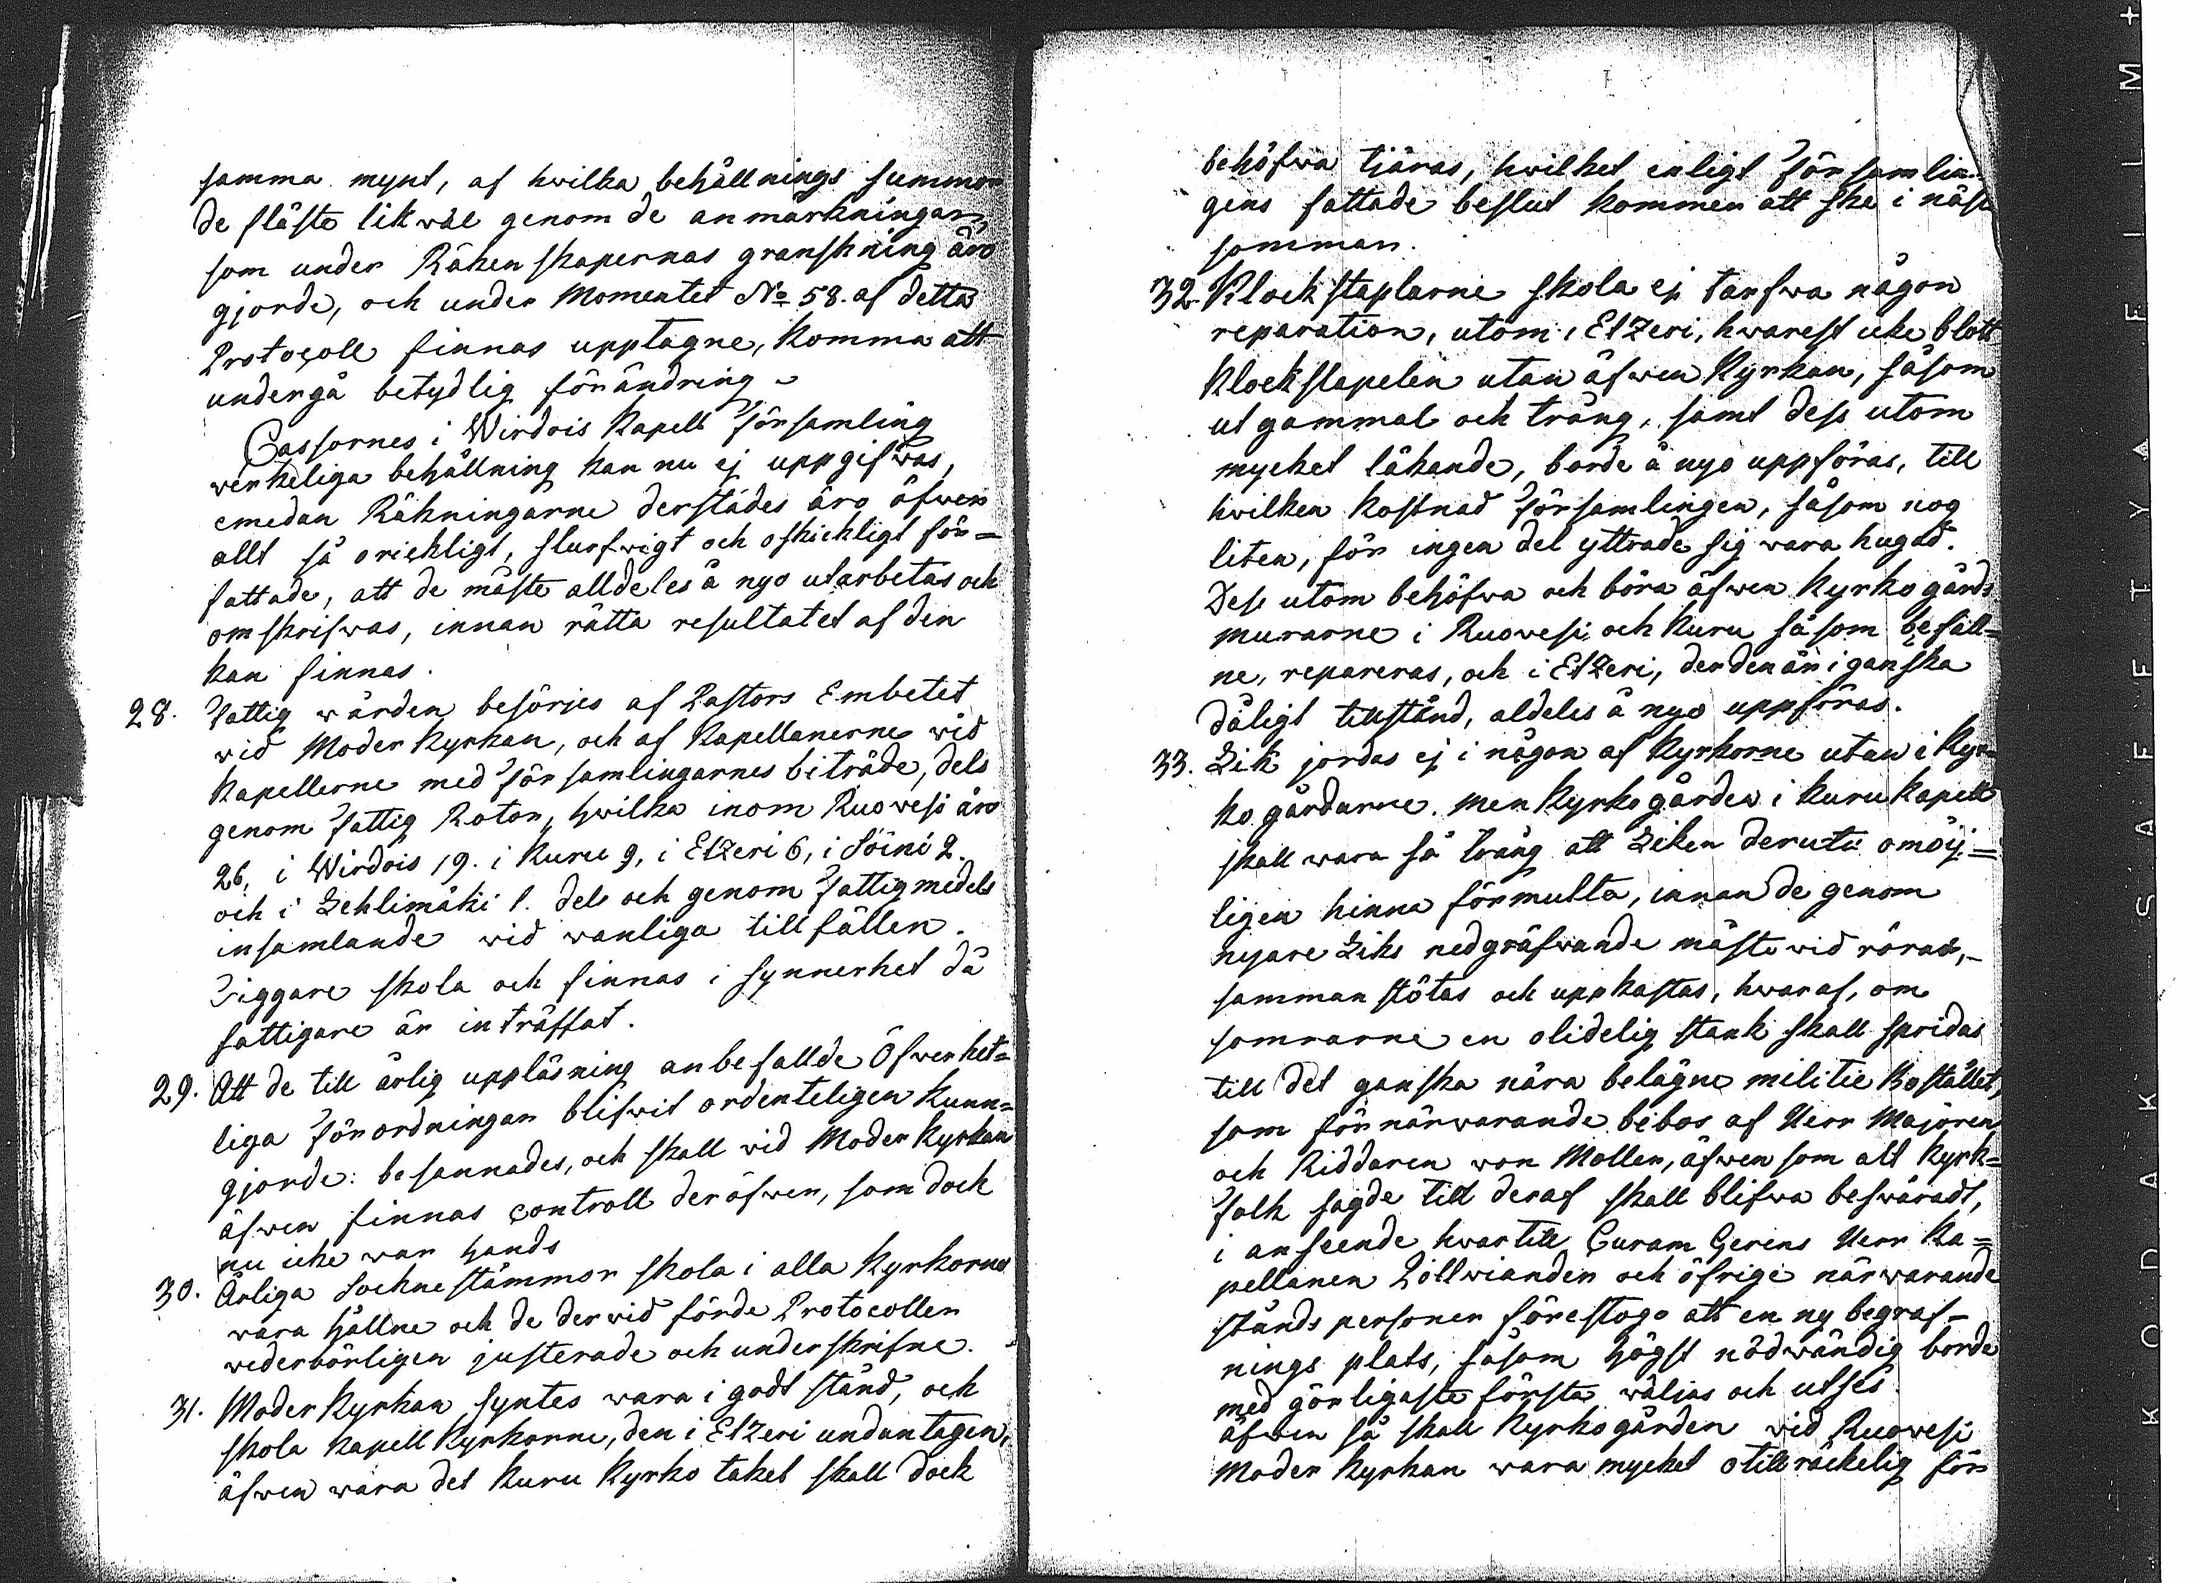 samma mynt, af hwilka behållnings summor
de fläste likwäl genom de anmärkningar,
som under Räkenskapernas granskning äro
gjorde, och under Momentet No 58. af detta
Protocoll finnas upptagne, komma att
undergå betydlig förändring.
Cassornes i Wirdois Kapell Församling
werkeliga behållning kan nu ej uppgifwas,
emedan Räkningarne derstädes äro öfwer
allt så oricktigt, slurfwigt och oskickligt för=
fattade, att de måste alldeles å nyo utarbetas och
omskrifwas, innan rätta resultatet af den
kan finnas.
28. Fattig wården besörjes af Pastors Embetet
wid Moder kyrkan, och af Kapellanerne wid
Kapellerne med Församlingarnes biträde, dels
genom Fattig Rotor, hwilka inom Ruowesi äro
26, i Wirdois 19. i Kuru 9, i Etzeri 6, i Söini 2.
och i Lehtimäki 1. dels och genom Fattigmedels
insamlande wid wanliga tillfällen.
Tiggare skola och finnas i synnerhet då
fattigare år inträffat.
29. Att de till årlig uppläsning anbefallde Öfwerhet=
liga Förordningar blifwit ordenteligen kunn=
gjorde: besannades, och skall wid Moder kyrkan
äfwen finnas controll deröfwer, som dock
nu icke war hands
30. Årliga Sockne stämmor skola i alla Kyrkorne
wara hållne och de derwid förde Protocoller
wederbörligen justerade och underskrifne.
31. Moder Kyrkan syntes wara i godt stånd, och
skola Kapell Kyrkorne, den i Etzeri undantagen,
äfwen wara det Kuru Kyrko taket skall dock
behöfwa tjäras, hwilket enligt Församlin=
gens fattade beslut kommer att ske i näst
sommar.
32. Klockstaplarne skola ej tarfwa någon
reparation, utom i Etzeri, hwarest icke blott
Klockstapelen utan äfwen Kyrkan, såsom
ut gammal och trång, samt dess utom
mycket läkande, borde å nyo uppföras, till
hwilken kostnad Församlingen, såsom nog
liten, för ingen del yttrade sig wara hugad.
Dess utom behöfwa och böra äfwen kyrkogårds
murarne i Ruowesi och Kuru såsom befäll=
ne, repareras, och i Etzeri, der den är i ganska
dåligt tillstånd, aldeles å nyo uppföras.
33. Lik jordas ej i någon af Kyrkorne utan i Kyr=
ko gårdarne. Men Kyrkogården i Kuru Kapell
skall wara så trång att Liken derute omöj=
ligen hinna förmultna, innan de genom
nyare Liks nedgräfwande måste wid röras,
samman stötas och uppkastas, hwaraf, om
somrarne en olidelig stank skall spridas
till det ganska nära belägne militie Bostället,
som för närwarande bebos af Herr Majoren
och Riddaren von Mollen, äfwen som alt kyrk=
folk sagde till deraf skall blifwa beswäradt,
i anseende hwartill Curam Gerens Herr Ka=
pellanen Pollwiander och öfrige närwarande
stånds personer förestogo att en ny begraf=
nings plats, såsom högst nödwändig borde
med görligaste första wäljas och utses.
Äfwen så skall Kyrkogården wid Ruowesi
Moder Kyrkan wara mycket otillräckelig för
KODAK SAFETY FILM